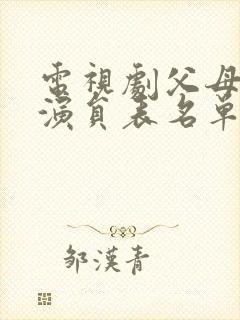 電視劇父母
演員表名單
鄒漢青